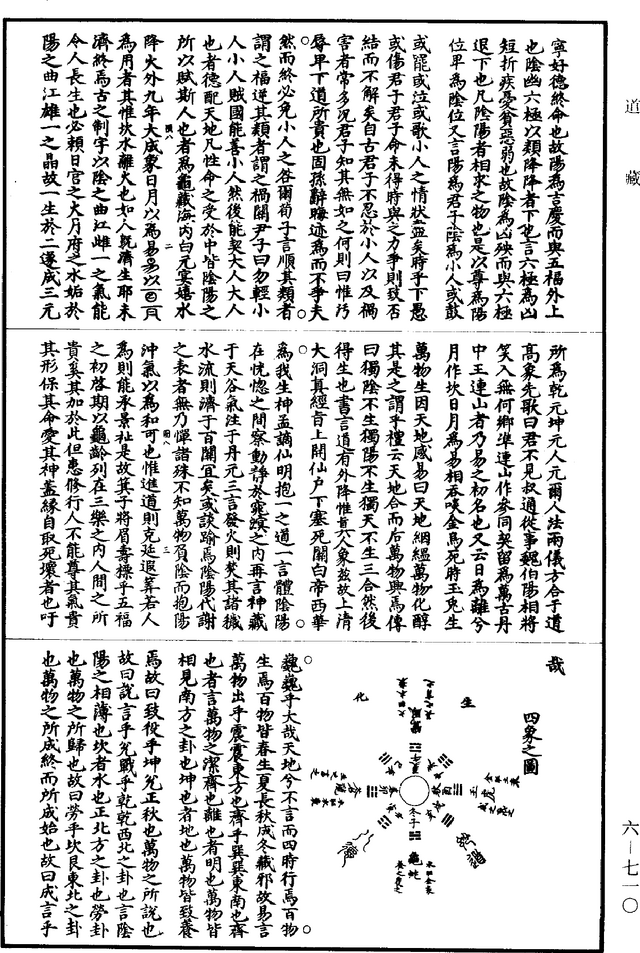 道藏
寧好德終命也故陽為言慶而與五福外上
也陰幽六極以類降降者下也言六極為凶
短折疾憂貧惡弱也故陰為凶殃而與六極
退下也凡陰陽者相求之物也是以尊為陽
位卑為陰位又言陽為君子陰為小人或鼓
或罷或泣或歌小人之情狀盡矣時乎下愚
或傷君子君子命未得時與之力爭則致否
結而不解矣自古君子不忍於小人以及禍
害者常多況君子知其無如之何則曰惟巧
辱卑下道所貴也固孫辭晦迹為而不爭夫
然而終必免小人之咎爾荀子言順其類者
謂之福逆其類者謂之禍關尹子曰勿輕小
人小人賊國能善小人然後能契大人大人
也者德配天地凡性命之受於中皆陰陽之
所以賦斯人也者為龜藏海內白元宴嬉水
降火外九年大成象日月以為易易以
為用者其惟坎水離火也如人既濟生耶未
濟終焉古之制字以陰之曲江雌一之氣能
令人長生也必賴日宮之大月府之水姤於
陽之曲江雄一之晶故一生於二遂成三元
所為乾元坤元人元爾人法兩儀方合于道
高象先歌曰君不見叔通從事魏伯陽相將
笑入無何鄉準連山作參同契留為萬古丹
中王連山者乃易之初名也又云日為離兮
月作坎日月為易相吞啖金馬死時玉兔生
萬物生因天地感易曰天地絪縕萬物化醇
其是之謂乎禮云天地合而后萬物興焉傳
曰獨陰不生獨陽不生獨天不生三合然後
得生也書言道有外降惟首八象茲故上清
大洞真經旨上開仙戶下塞死關白帝西華
為我生神孟謫仙明抱一之道一言體陰陽
在恍惚之間察動靜於窈冥之內再言神藏
于天谷氣注于丹元三言發火則焚其諸穢
水流則濟于百關宜矣或談踰馬陰陽代謝
之表者無乃憚諸殊不知萬物負陰而抱陽
沖氣以為和可也惟進道則克延遐筭若人
為則能承景祉是故箕子將眉壽標乎五福
之初啓期以龜齡列在三樂之內人間之所
貴奚其加於此但患修行人不能尊其氣貴
其形保其命愛其神蓋緣自取死壞者也吁
哉
四象之圖
生
化
巍巍乎大哉天地兮不言而四時行焉百物
生焉百物皆春生夏長秋成冬藏邪故易言
萬物出乎震震東方也齊乎巽巽東南也齊
也者言萬物之潔齊也離也者明也萬物皆
相見南方之卦也坤也者地也萬物皆致養
焉故曰致役乎坤兌正秋也萬物之所說也
故曰說言乎兌戰乎乾乾西北之卦也言陰
陽之相薄也坎者水也正北方之卦也勞卦
也萬物之所歸也故曰勞乎坎艮東北之卦
也萬物之所成終而所成始也故曰成言乎
六—七一〇